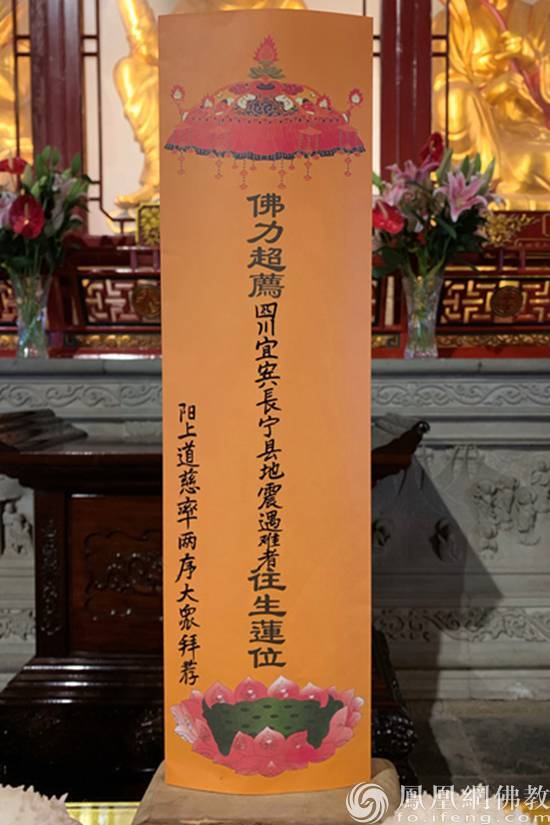 佛力超薦四川宜宾長宁县地震遇难者往生蓮位
阳上道慈率两序大眾拜荐
鳳凰網佛教
fo.ifeng.com